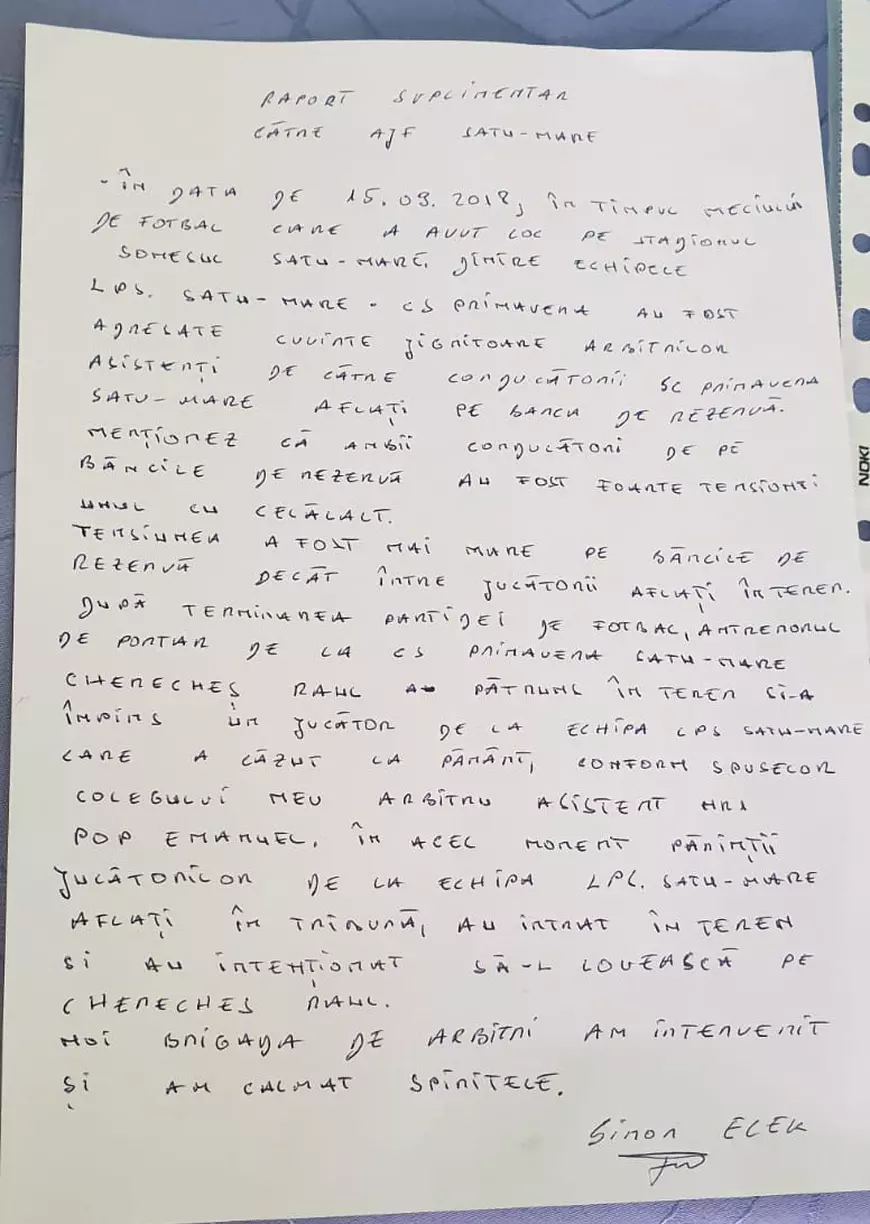 RAPORT SUPLIMENTAR
CĂTRE AJF SATU-MARE
- ÎN DATA DE 15.09.2018, ÎN TIMPUL MECIULUI
DE FOTBAL CARE A AVUT LOC PE STADIONUL
SOMESUL SATU-MARE, DINTRE ECHIPELE
LPS. SATU-MARE - CS PRIMAVERA AU FOST
ADRESATE CUVINTE JIGNITOARE ARBITRILOR
ASISTENȚI DE CĂTRE CONDUCĂTORII SC PRIMAVERA
SATU-MARE AFLAȚI PE BANCA DE REZERVĂ.
MENȚIONEZ CĂ AMBII CONDUCĂTORI DE PE
BĂNCILE DE REZERVĂ AU FOST FOARTE TENSIONTI
UNUL CU CELĂLALT.
TENSIUNEA A FOST MAI MARE PE BĂNCILE DE
REZERVĂ DECÂT ÎNTRE JUCĂTORII AFLAȚI ÎN TEREN.
DUPĂ TERMINAREA PARTIDEI DE FOTBAL, ANTRENORUL
DE PORTAR DE LA CS PRIMAVERA SATU-MARE
CHERECHEȘ RAUL A PĂTRUNS ÎN TEREN SI-A
ÎMPINS UN JUCĂTOR DE LA ECHIPA LPS SATU-MARE
CARE A CĂZUT LA PĂMÂNT, CONFORM SPUSELOR
COLEGULUI MEU ARBITRU ASISTENT NR1
POP EMANUEL. ÎN ACEL MOMENT PĂRINȚII
JUCĂTORILOR DE LA ECHIPA LPS. SATU-MARE
AFLAȚI ÎN TRIBUNĂ, AU INTRAT ÎN TEREN
SI AU INTENȚIONAT SĂ-L LOVEASCĂ PE
CHERECHES RAUL.
NOI BRIGADA DE ARBITRI AM INTERVENIT
ȘI AM CALMAT SPIRITELE.
Simon ELEK
NOKI